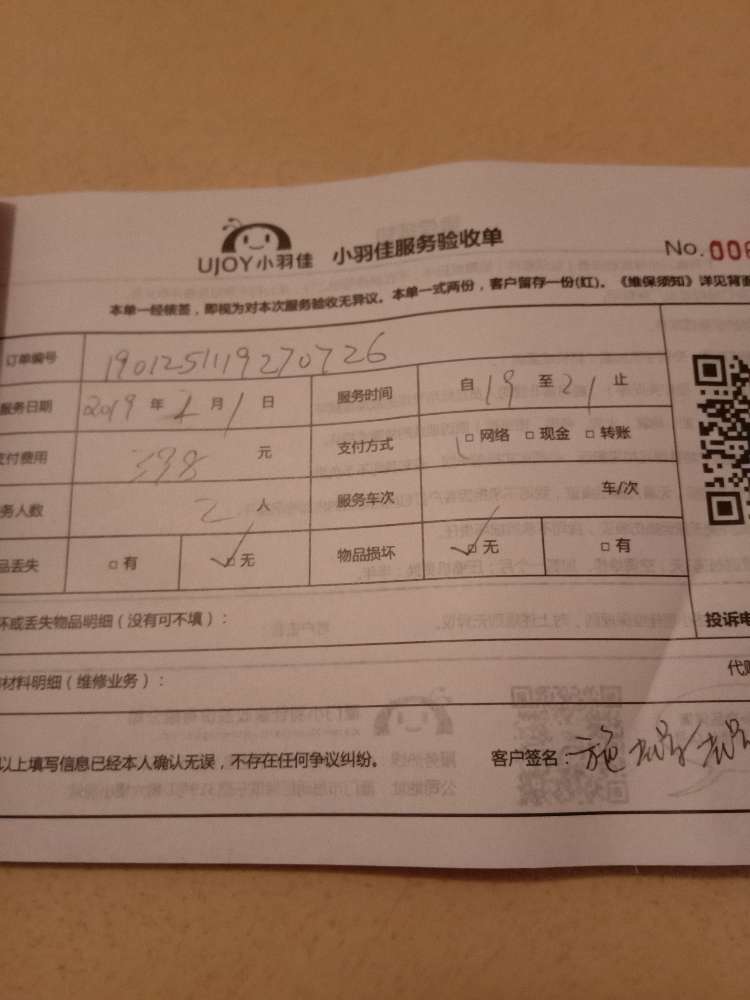 UJOY小羽佳 小羽佳服务验收单 No.006
本单一经核签，即视为对本次服务验收无异议。本单一式两份，客户留存一份(红)。《维保须知》详见背面
订单编号 1901251119270726
服务日期 2019 年 2 月 1 日 服务时间 自 19 至 21 止
支付费用 398 元 支付方式 □ 网络 □ 现金 □ 转账
务人数 2 人 服务车次 车/次
品丢失 □ 有 □ 无 物品损坏 □ 无 □ 有
坏或丢失物品明细（没有可不填）： 投诉电
材料明细（维修业务）： 代购
以上填写信息已经本人确认无误，不存在任何争议纠纷。 客户签名：施